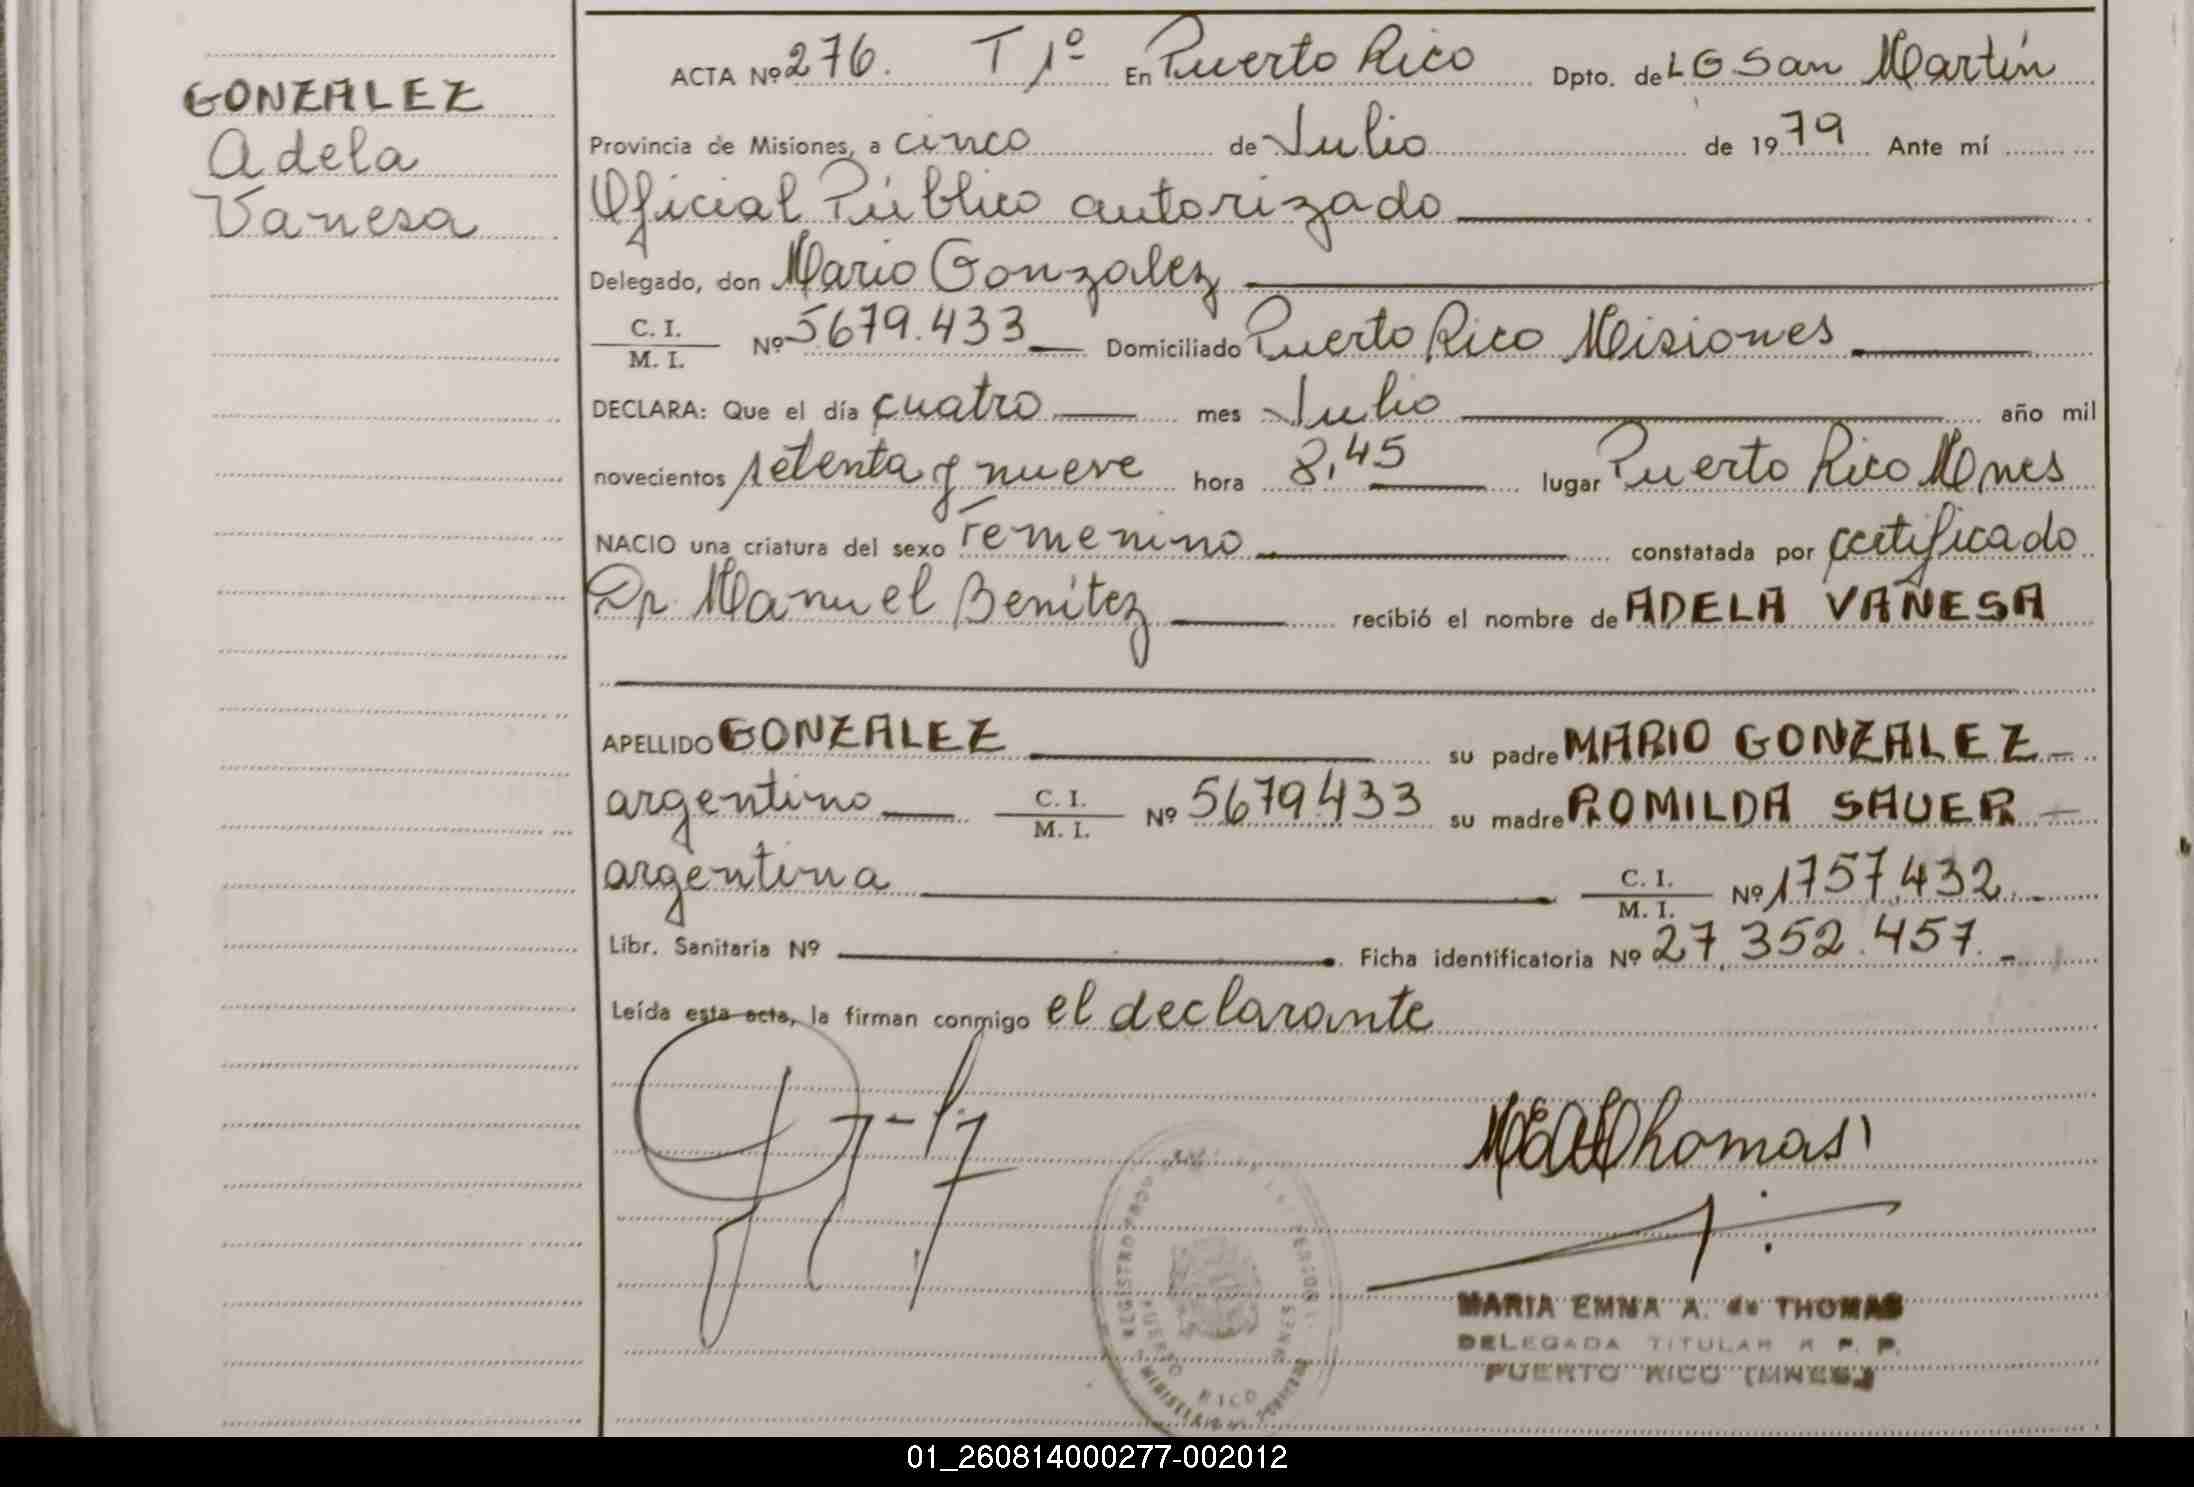 GONZALEZ
Adela
Vanesa
ACTA Nº 276. T 1º En Puerto Rico Dpto. de L G San Martín
Provincia de Misiones, a cinco de Julio de 1979 Ante mí
Oficial Público autorizado
Delegado, don Mario Gonzalez
C. I. / M. I. Nº 5679.433 Domiciliado Puerto Rico Misiones
DECLARA: Que el día cuatro mes Julio año mil
novecientos setenta y nueve hora 8,45 lugar Puerto Rico Mnes
NACIO una criatura del sexo femenino constatada por certificado
Dr. Manuel Benítez recibió el nombre de ADELA VANESA
APELLIDO GONZALEZ su padre MARIO GONZALEZ
argentino C. I. / M. I. Nº 5679433 su madre ROMILDA SAUER
argentina C. I. / M. I. Nº 1757,432
Libr. Sanitaria Nº Ficha identificatoria Nº 27.352.457.
Leída esta acta, la firman conmigo el declarante
Thomas
MARIA EMMA A. de THOMAS
DELEGADA TITULAR R. P. P.
PUERTO RICO (MNES.)
PUERTO RICO MNES
01_260814000277-002012